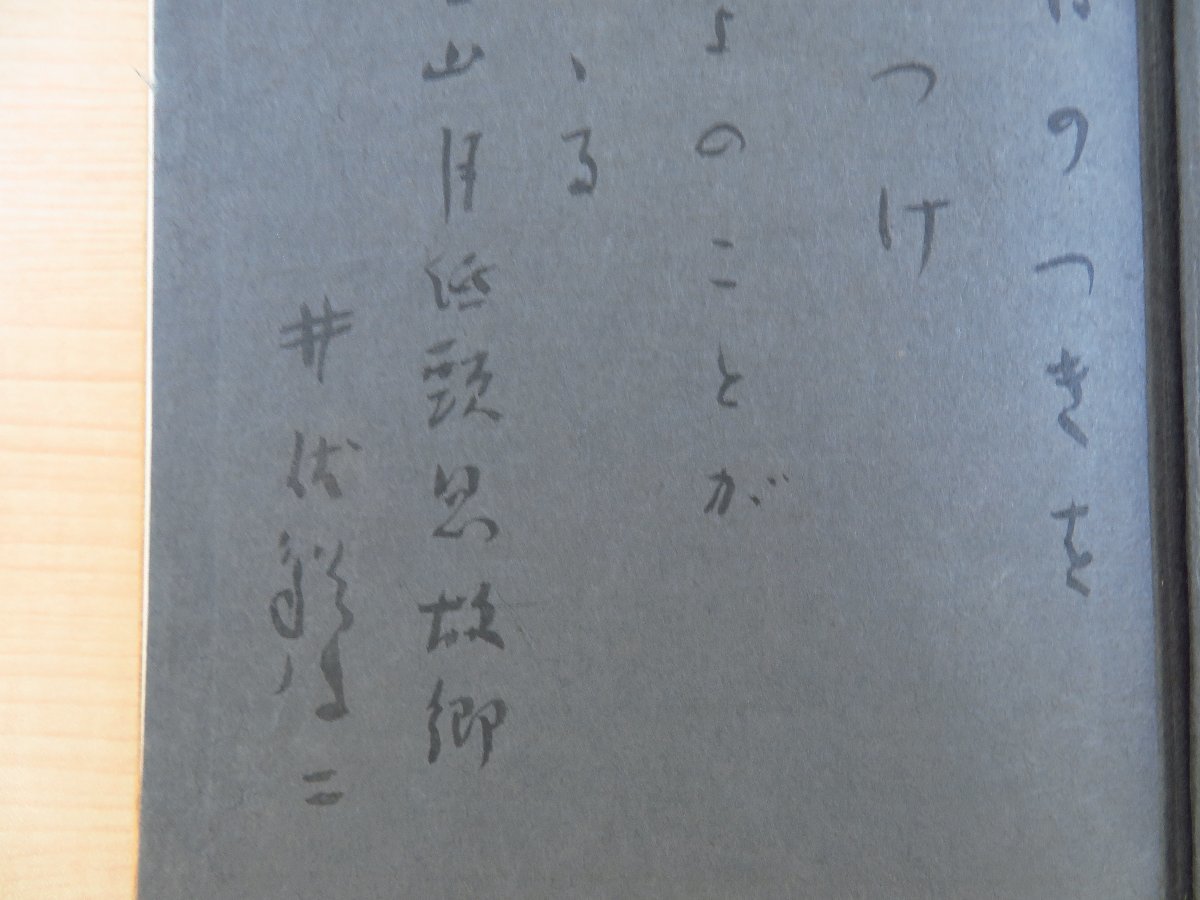 のつきを
つけ
のことが
ゝる
山月低頭思故郷
井伏鱒二